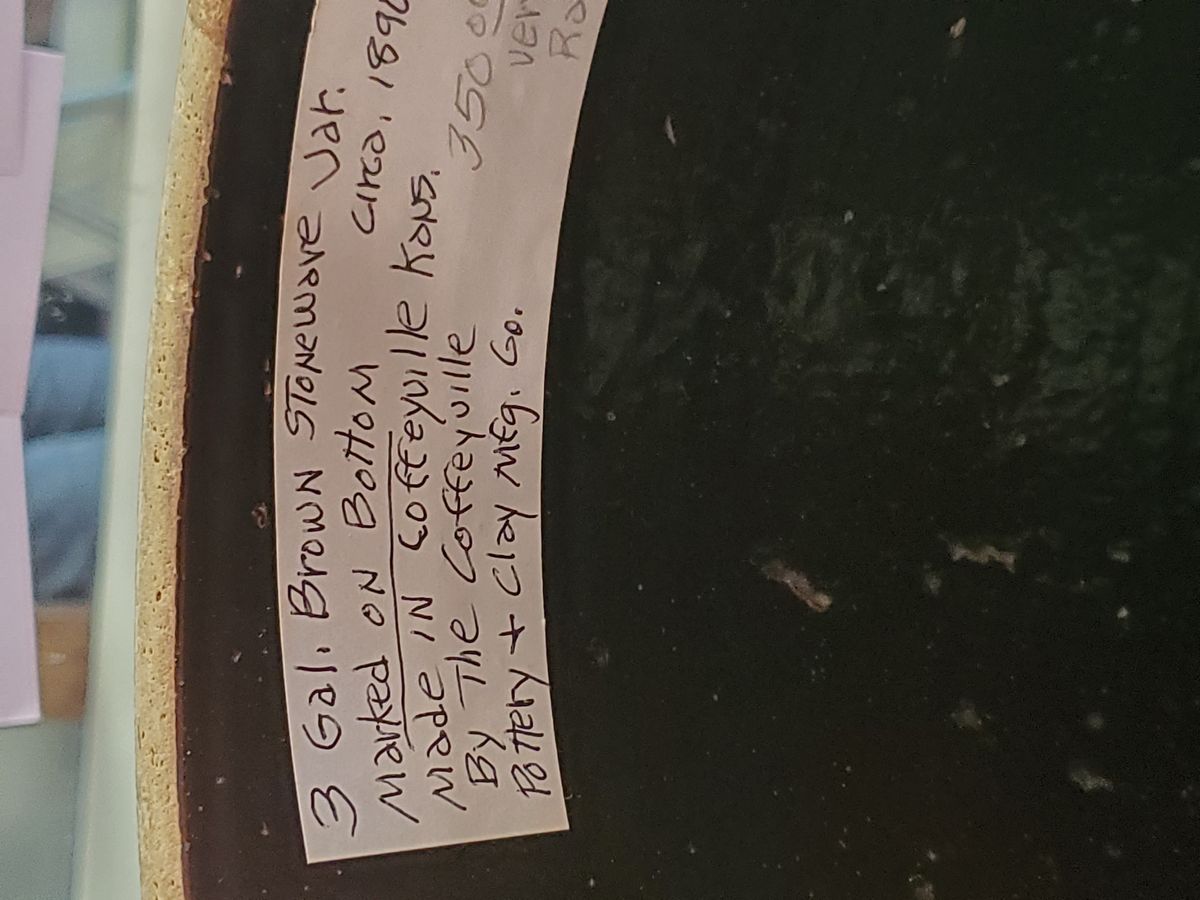 3 Gal. Brown Stoneware Jar.
Marked on Bottom circa. 189
Made in Coffeyville Kans.
By The Coffeyville 350 00
Pottery + Clay Mfg. Co.